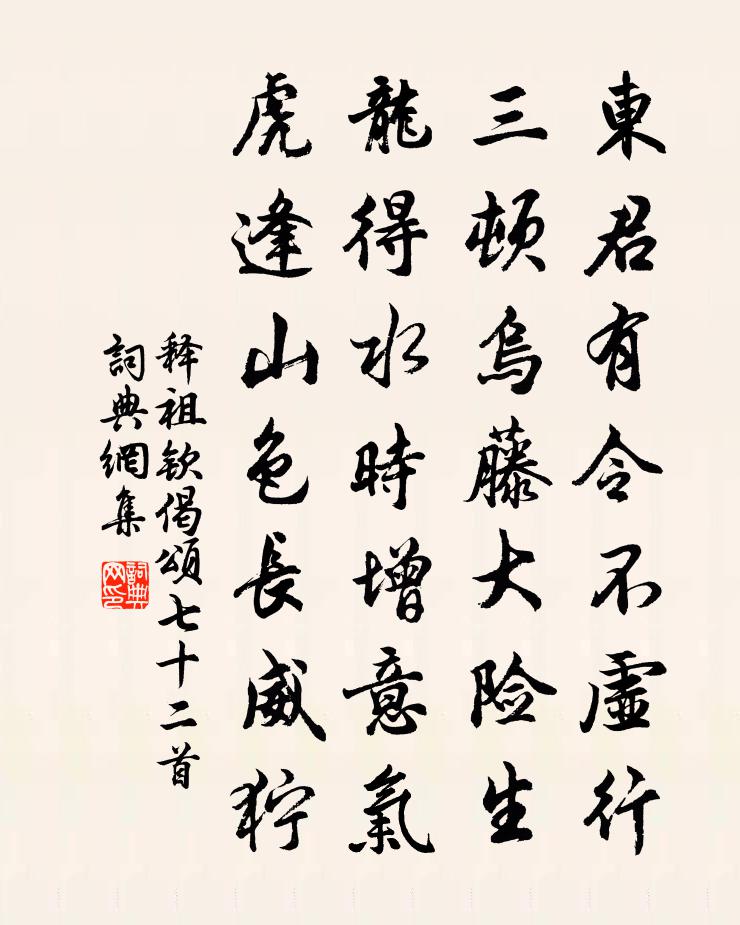 東君有令不虛行
三頓烏藤大险生
龍得水時增意氣
虎逢山色長威狞
释祖欽偈頌七十二首
詞典網集
詞典网印